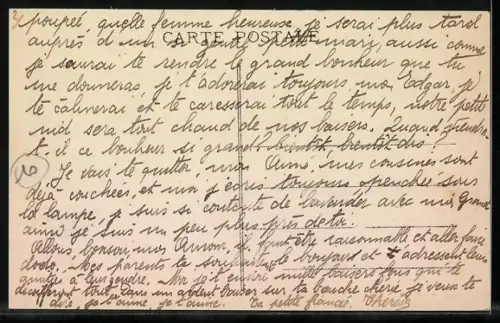 poupée, quelle femme heureuse je serai plus tard
CARTE POSTALE
auprès d'un si gentil petit mari, aussi comme
je saurai te rendre le grand bonheur que tu
me donneras, je t'adorerai toujours mon Edgar, je
te câlinerai et te caresserai tout le temps, notre petit
nid sera tout chaud de nos baisers. Quand viendra
t-il ce bonheur si grand bientôt, bientôt dis!
16
Je vais te quitter, mon Aimé, mes cousines sont
déjà couchées, et moi j'écris toujours penchée sous
la lampe, je suis si contente de bavarder avec mon grand
ami je suis un peu plus près de toi.
Allons, bonsoir mon Amour, il faut être raisonnable et aller faire
dodo. Mes parents te souhaitent le bonjour et t'adressent leurs
amitiés. Moi je t'envoie mille baisers fous qui te
diront tout. Dans un ardent baiser sur ta bouche chérie, je veux te
dire, je t'aime, je t'aime. Ta petite fiancée.